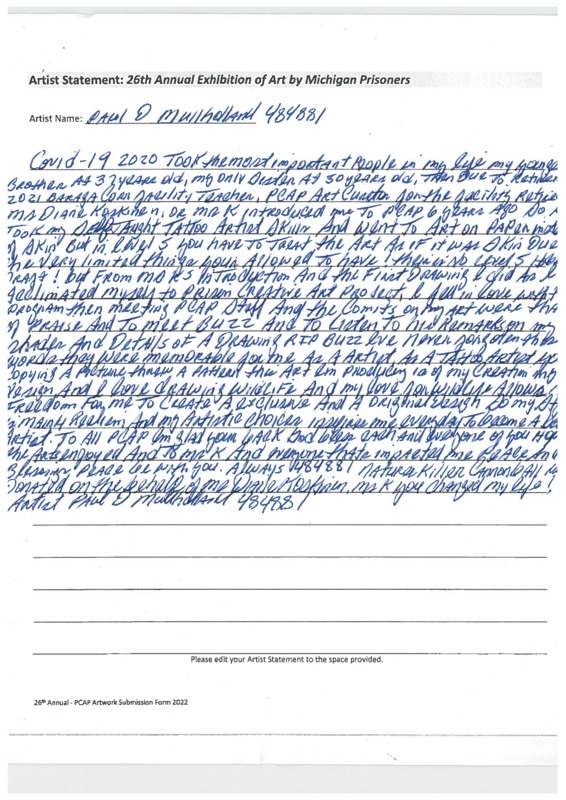 Artist Statement: 26th Annual Exhibition of Art by Michigan Prisoners
Artist Name: PAUL D Mullholland 484881
Covid-19 2020 TOOK the most important People in my life my younge
Brother At 37 years old, my only Sister At 50 years old, Then Due To Retire
2021 BARAGA Corr facility Teacher, PCAP Art Curator for the facility Retire
MS Diane Koskinen, or ms K introduced me To PCAP 6 years Ago
Took my Self Taught Tattoo Artist Skills And Went To Art on Paper inste
of Skin But in Level 5 you have To Treat the Art As if it was Skin Due
the very limited things your Allowed To have! there is No Level 5 Hobby
CRAFT! but From MS K'S Introduction And the First Drawing I did As I
acclimated myself to Prison Creative Art Project, I fell in Love with
program then meeting PCAP Staff And the Comits on my art were tha
of PRAISE And To meet BUZZ And To Listen To his Remarks on my
shades And Details of A DRAWING RIP BUZZ Ive Never forgotten thos
words they were memorable for me As A Artist, As A Tattoo Artist
A Picture the Art I'm Producing is of my Creation
Design And I Love DRAWING Wildlife And my Love for Wildlife Allows
Freedom For me To Create A exclusive And A original Design
is mainly Realism And my Artistic Choices inspires me everyday To Become A
Artist. To All PCAP I'm glad your back God bless each and everyone of you
the Art enjoyed And To ms K And everyone thats impacted me Peace An
Blessings Peace be with you. Always 484881 Natural Killer Cannonball is
Donated on the behalf of me Diane Koskinen, ms K you changed my life!
Artist Paul D Mullholland 484881
Please edit your Artist Statement to the space provided.
26th Annual - PCAP Artwork Submission Form 2022